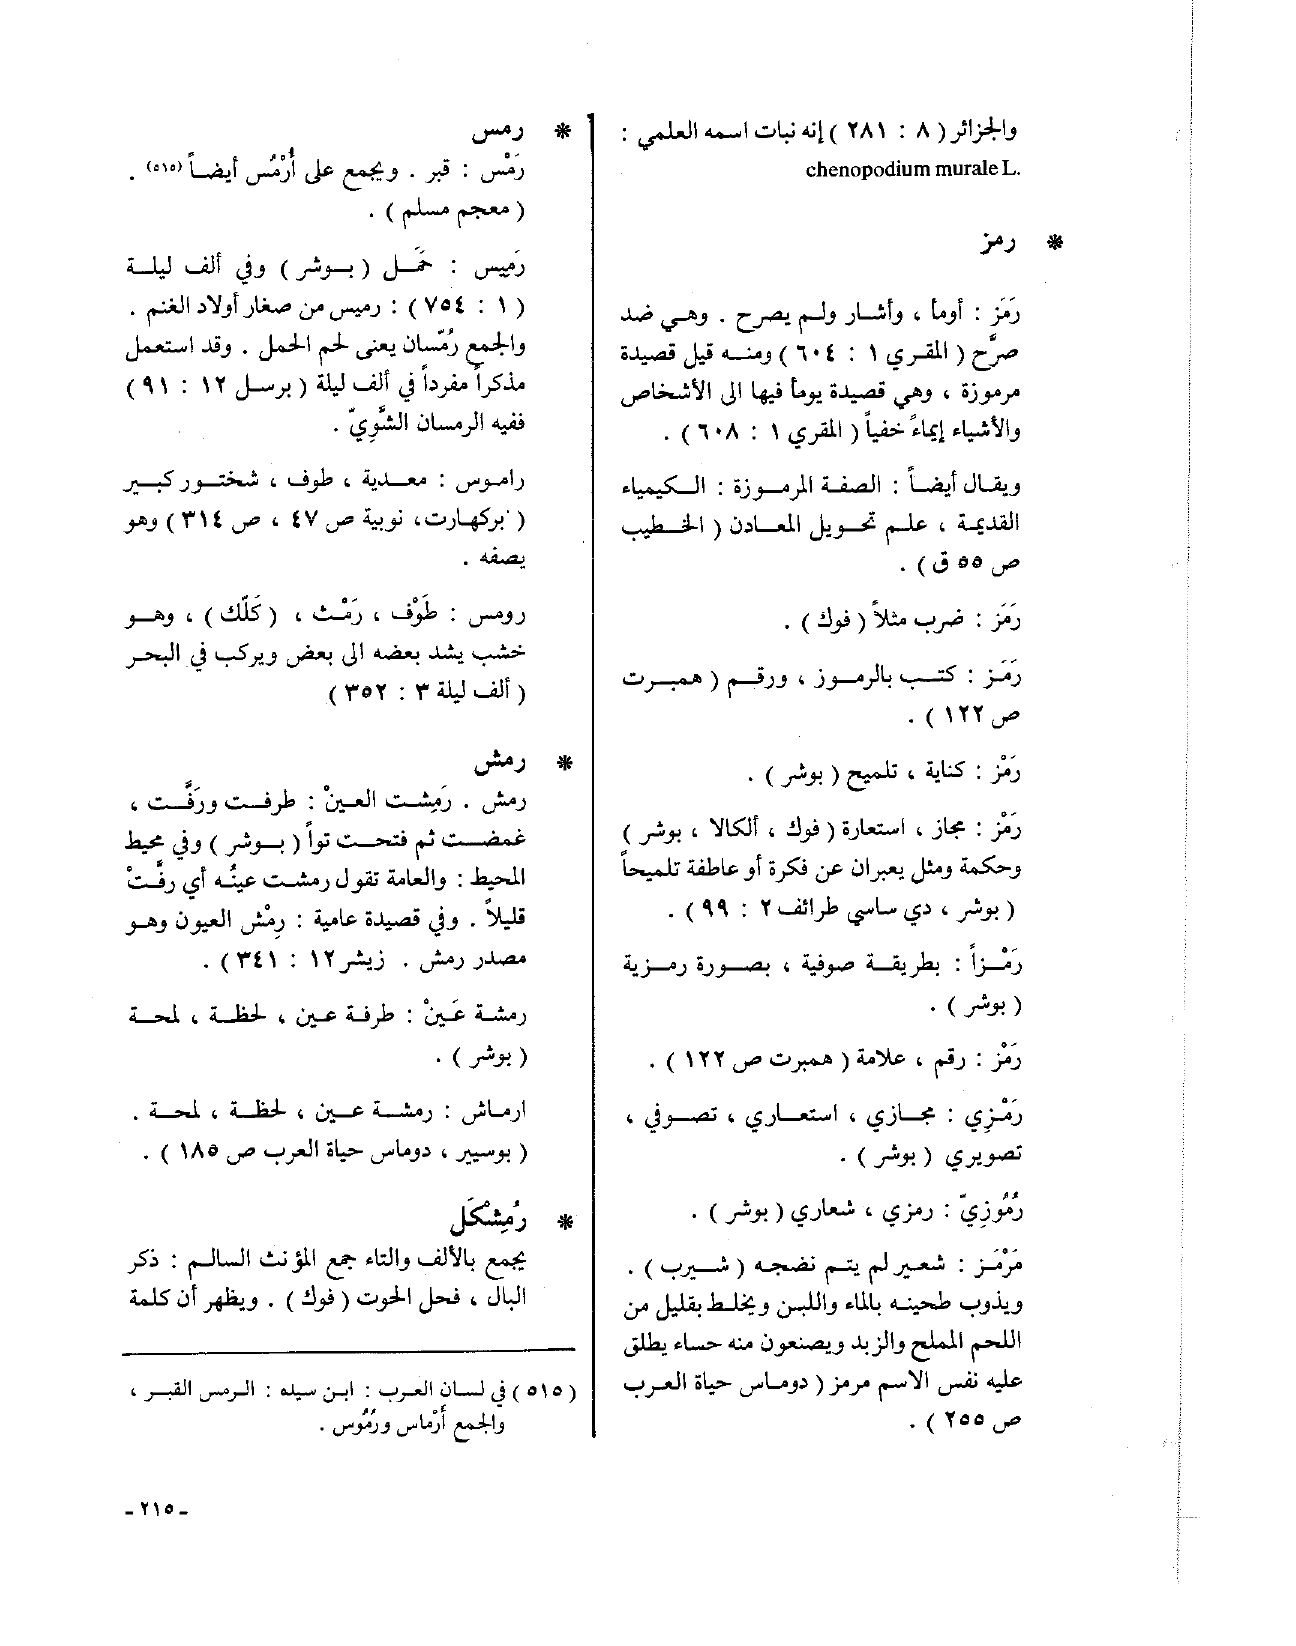 والجزائر ( ٨ : ٢٨١ ) إنه نبات اسمه العلمي :
chenopodium murale L.
* رمز
رَمَز : أومأ ، وأشار ولم يصرح . وهي ضد
صرَّح ( المقري ١ : ٦٠٤ ) ومنه قيل قصيدة
مرموزة ، وهي قصيدة يومأ فيها الى الأشخاص
والأشياء إيماءً خفياً ( المقري ١ : ٦٠٨ ) .
ويقال أيضاً : الصفة المرموزة : الكيمياء
القديمة ، علم تحويل المعادن ( الخطيب
ص ٥٥ ق ) .
رَمَز : ضرب مثلاً ( فوك ) .
رَمَز : كتب بالرموز ، ورقم ( همبرت
ص ١٢٢ ) .
رَمْز : كناية ، تلميح ( بوشر ) .
رَمْز : مجاز ، استعارة ( فوك ، ألكالا ، بوشر )
وحكمة ومثل يعبران عن فكرة أو عاطفة تلميحاً
( بوشر ، دي ساسي طرائف ٢ : ٩٩ ) .
رَمْزاً : بطريقة صوفية ، بصورة رمزية
( بوشر ) .
رَمْز : رقم ، علامة ( همبرت ص ١٢٢ ) .
رَمْزي : مجازي ، استعاري ، تصوفي ،
تصويري ( بوشر ) .
رُمُوزيّ : رمزي ، شعاري ( بوشر ) .
مَرْمَز : شعير لم يتم نضجه ( شيرب ) .
ويذوب طحينه بالماء واللبن ويخلط بقليل من
اللحم المملح والزبد ويصنعون منه حساء يطلق
عليه نفس الاسم مرمز ( دوماس حياة العرب
ص ٢٥٥ ) .
* رمس
رَمْس : قبر . ويجمع على أَرْمُس أيضاً (٥١٥) .
( معجم مسلم ) .
رَمِيس : حَمَل ( بوشر ) وفي ألف ليلة
( ١ : ٧٥٤ ) : رميس من صغار أولاد الغنم .
والجمع رُمْسان يعنى لحم الحمل . وقد استعمل
مذكراً مفرداً في ألف ليلة ( برسل ١٢ : ٩١ )
ففيه الرمسان الشَّوِيّ .
راموس : معدية ، طوف ، شختور كبير
( بركهارت، نوبية ص ٤٧ ، ص ٣١٤ ) وهو
يصفه .
رومس : طَوْف ، رَمْث ، ( كَلَّك ) ، وهو
خشب يشد بعضه الى بعض ويركب في البحر
( ألف ليلة ٣ : ٣٥٢ )
* رمش
رمش . رَمِشت العينْ : طرفت ورَفَّت ،
غمضت ثم فتحت تواً ( بوشر ) وفي محيط
المحيط : والعامة تقول رمشت عينُه أي رفَّتْ
قليلاً . وفي قصيدة عامية : رمْش العيون وهو
مصدر رمش . زيشر ١٢ : ٣٤١ ) .
رمشة عَينْ : طرفة عين ، لحظة ، لمحة
( بوشر ) .
ارماش : رمشة عين ، لحظة ، لمحة .
( بوسيير ، دوماس حياة العرب ص ١٨٥ ) .
* رُمِشْكَل
يجمع بالألف والتاء جمع المؤنث السالم : ذكر
البال ، فحل الحوت ( فوك ) . ويظهر أن كلمة
( ٥١٥ ) في لسان العرب : ابن سيده : الرمس القبر ،
والجمع أَرْماس ورُمُوس .
ـ ٢١٥ ـ